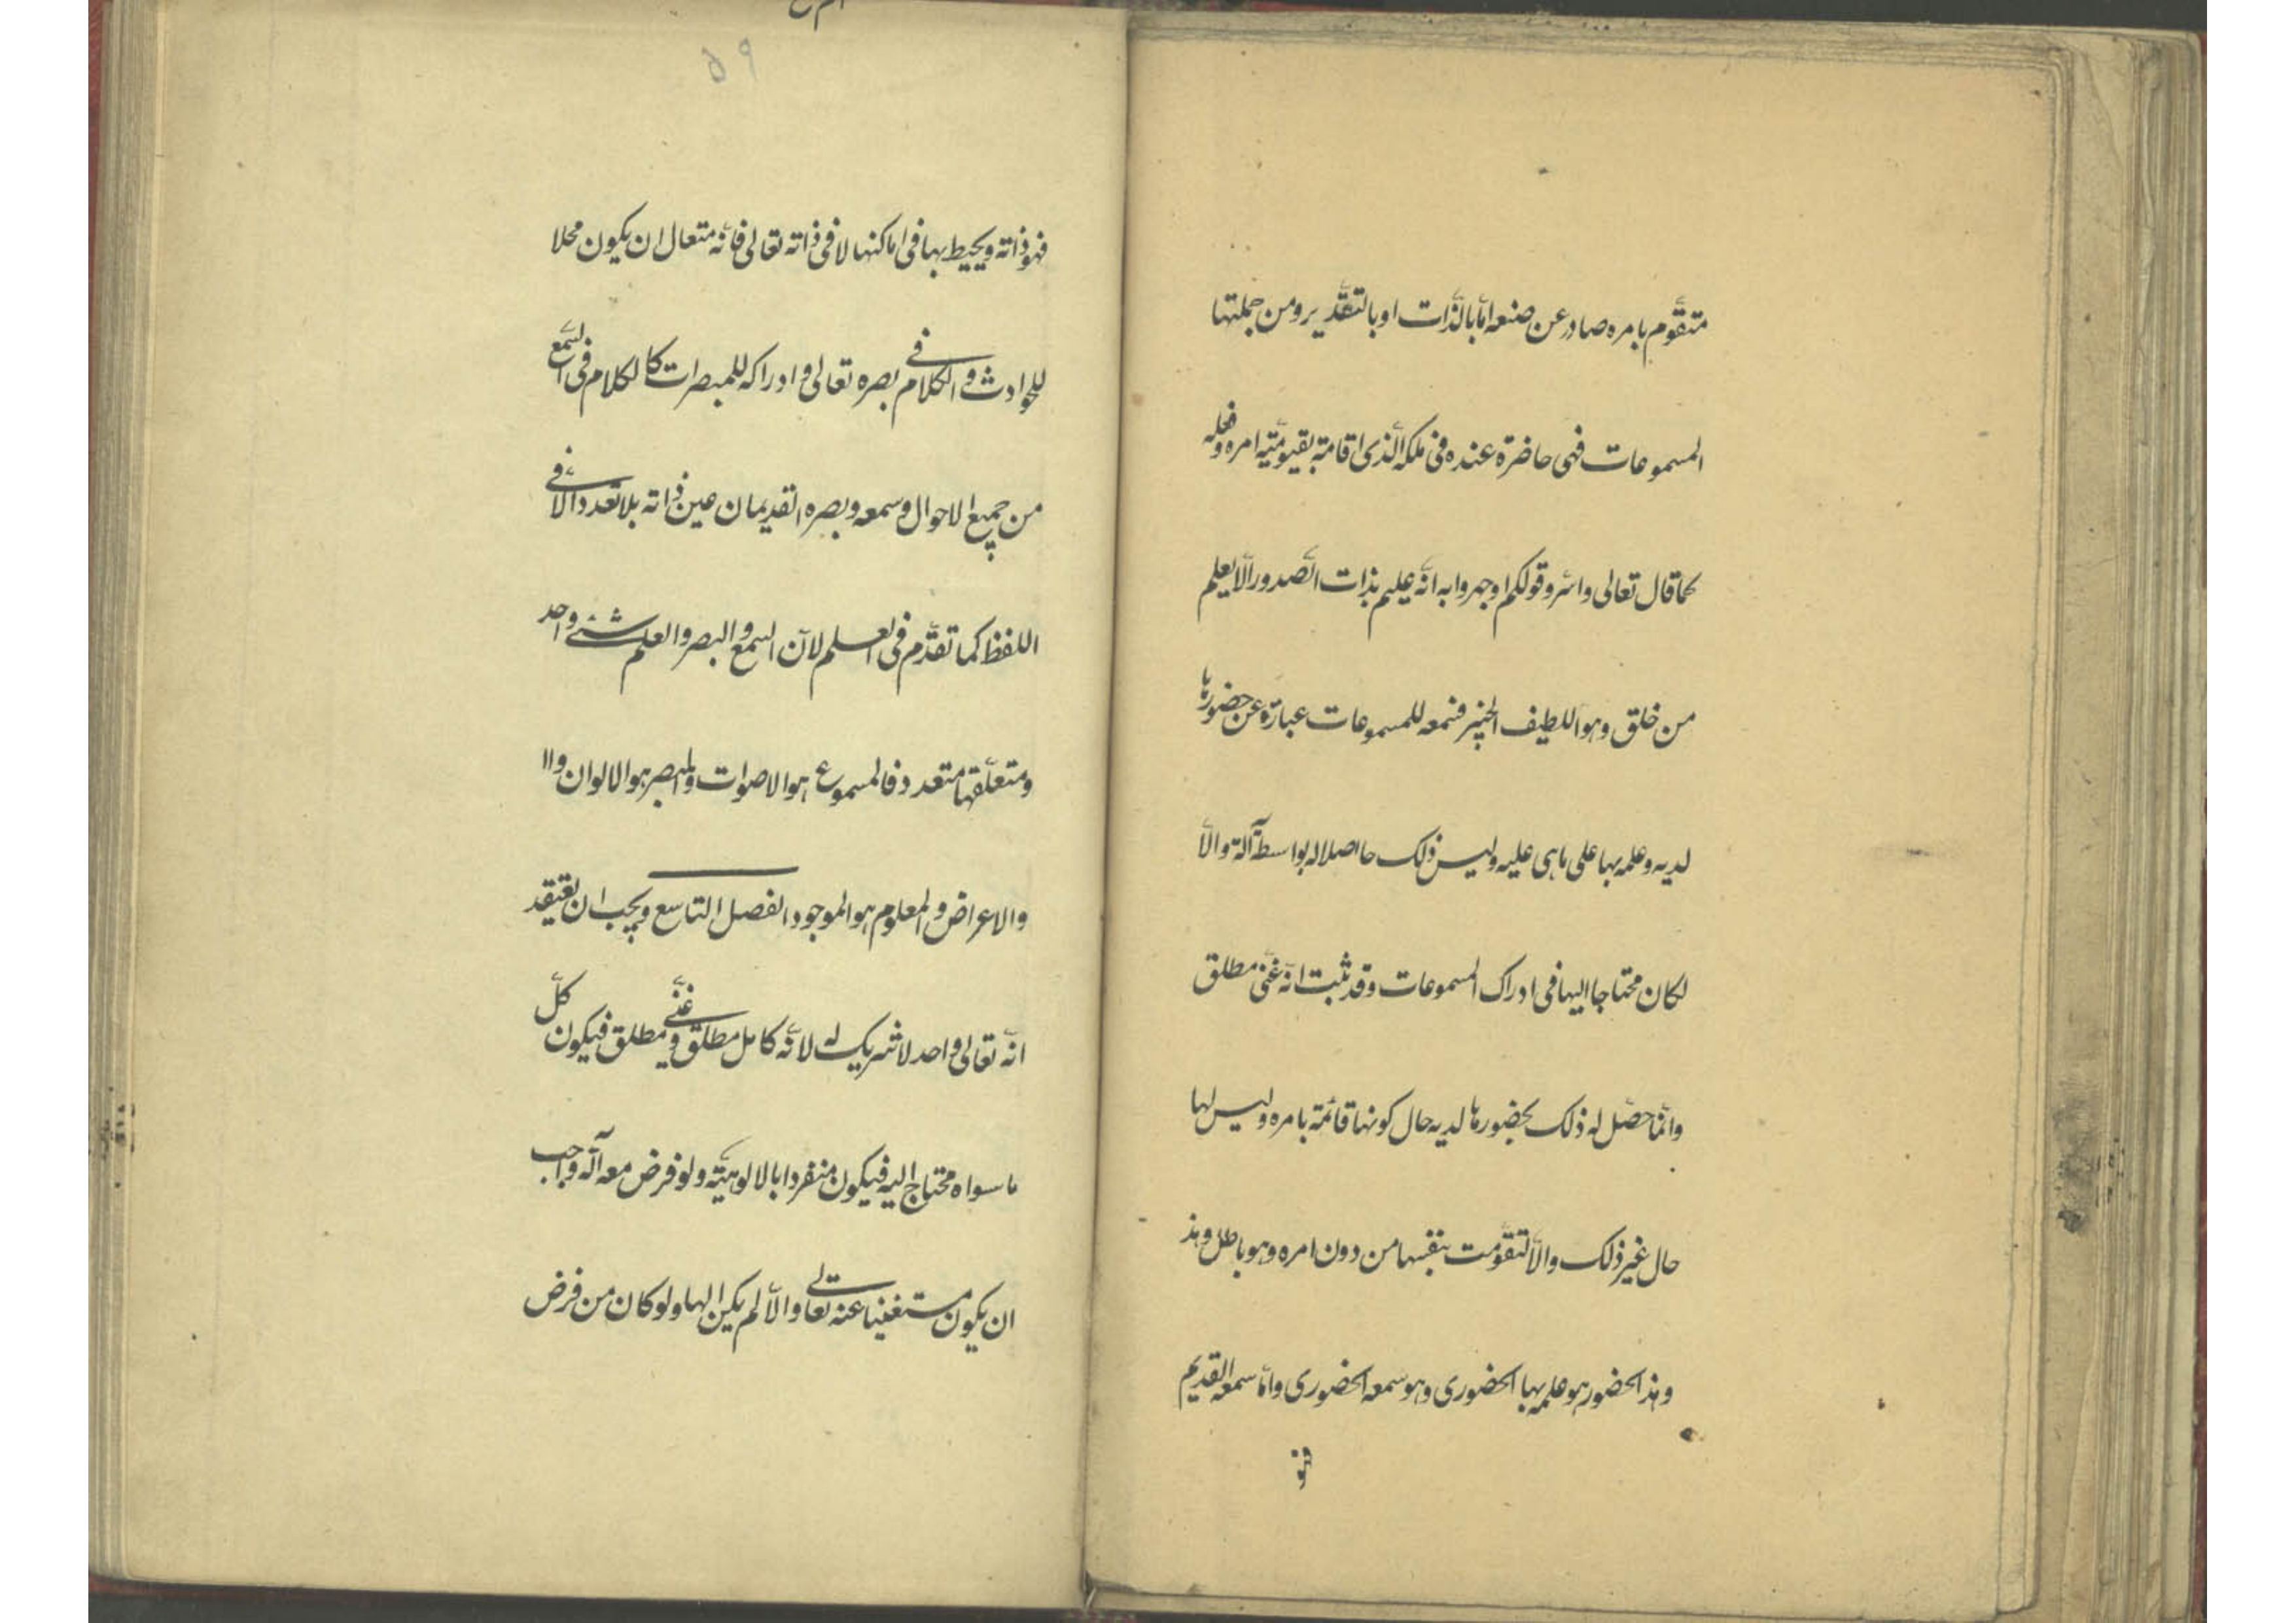 متقوّم بامره صادر عن صنعه امّا بالذّات او بالتقدير ومن جملتها
المسموعات فهى حاضرة عنده فى ملكه الّذى اقامه بقيوميّته امره وفعله
كما قال تعالى واسرّوا قولكم او اجهروا به انّه عليم بذات الصّدور الا يعلم
من خلق وهو اللطيف الخبير فسمعه للمسموعات عبارة عن حضورها
لديه وعلمه بها على ما هى عليه وليس ذلك حاصلا له بواسطة آلة والّا
لكان محتاجا اليها فى ادراك المسموعات وقد ثبت انّه غنىّ مطلق
وانّما حصّل له ذلك بحضورها لديه حال كونها قائمة بامره وليس لها
حال غير ذلك والّا لتقوّمت بنفسها من دون امره وهو باطل وهذ
وهذ الحضور هو علمه بها الحضورى وهو سمعه الحضورى وامّا سمعه القديم
فهو
٥٩
فهو ذاته ويحيط بها فى اماكنها لا فى ذاته تعالى فانّه متعال ان يكون محلا
للحوادث والكلام فى بصره تعالى وادراكه للمبصرات كالكلام فى السّمع
من جميع الاحوال وسمعه وبصره القديمان عين ذاته بلا تعدد الّا فى
اللفظ كما تقدّم فى العلم لانّ السمع والبصر والعلم شئ واحد
ومتعلّقها متعدد فالمسموع هو الاصوات والمبصر هو الالوان وال
والاعراض والمعلوم هو الموجود الفصل التاسع ويجب ان يعتقد
انّه تعالى واحد لا شريك له لانّه كامل مطلق وغنىّ مطلق فيكون كلّ
ما سواه محتاج اليه فيكون منفردا بالالوهيّة ولو فرض معه آله واجب
ان يكون مستغنيا عنه تعالى والّا لم يكن الها ولو كان من فرض